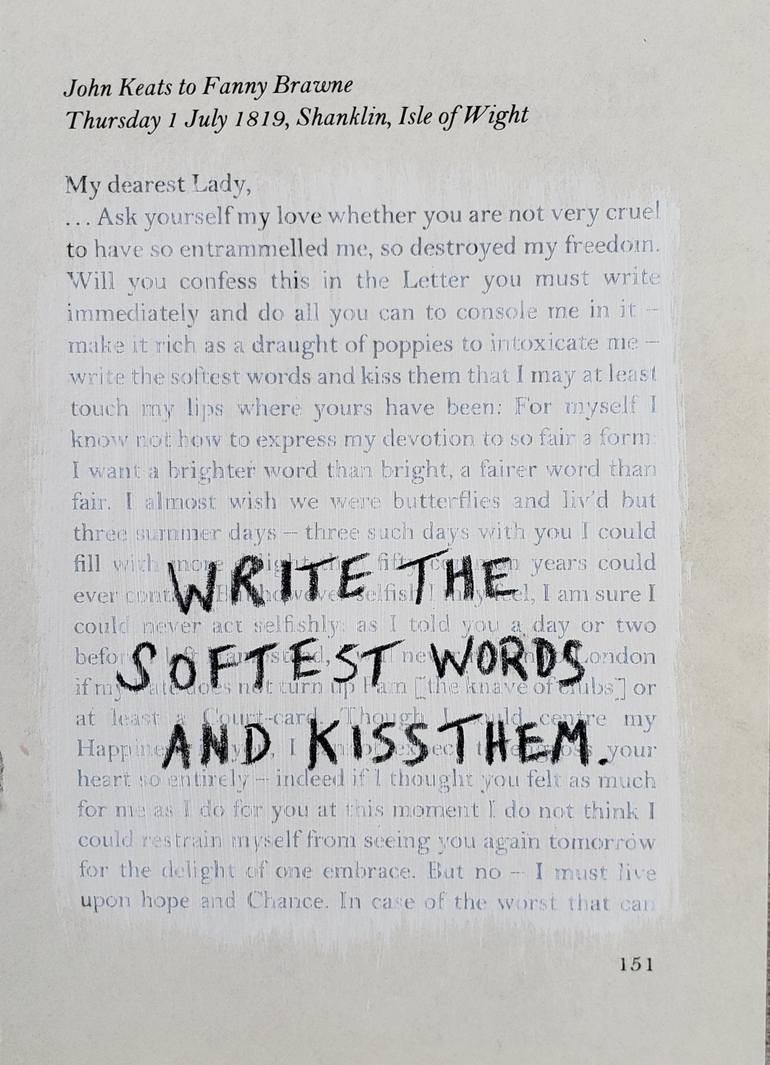 John Keats to Fanny Brawne
Thursday 1 July 1819, Shanklin, Isle of Wight
My dearest Lady,
... Ask yourself my love whether you are not very cruel
to have so entrammelled me, so destroyed my freedom.
Will you confess this in the Letter you must write
immediately and do all you can to console me in it –
make it rich as a draught of poppies to intoxicate me –
write the softest words and kiss them that I may at least
touch my lips where yours have been: For myself I
know not how to express my devotion to so fair a form:
I want a brighter word than bright, a fairer word than
fair. I almost wish we were butterflies and liv'd but
three summer days – three such days with you I could
fill with more fifty years could
ever I am sure I
WRITE THE
could never act selfishly: as I told you a day or two
London
SOFTEST WORDS
if my does not turn up I am [the knave of clubs] or
at least a Court-card. Though I centre my
I your
AND KISS THEM.
heart so entirely – indeed if I thought you felt as much
for me as I do for you at this moment I do not think I
could restrain myself from seeing you again tomorrow
for the delight of one embrace. But no – I must live
upon hope and Chance. In case of the worst that can
151